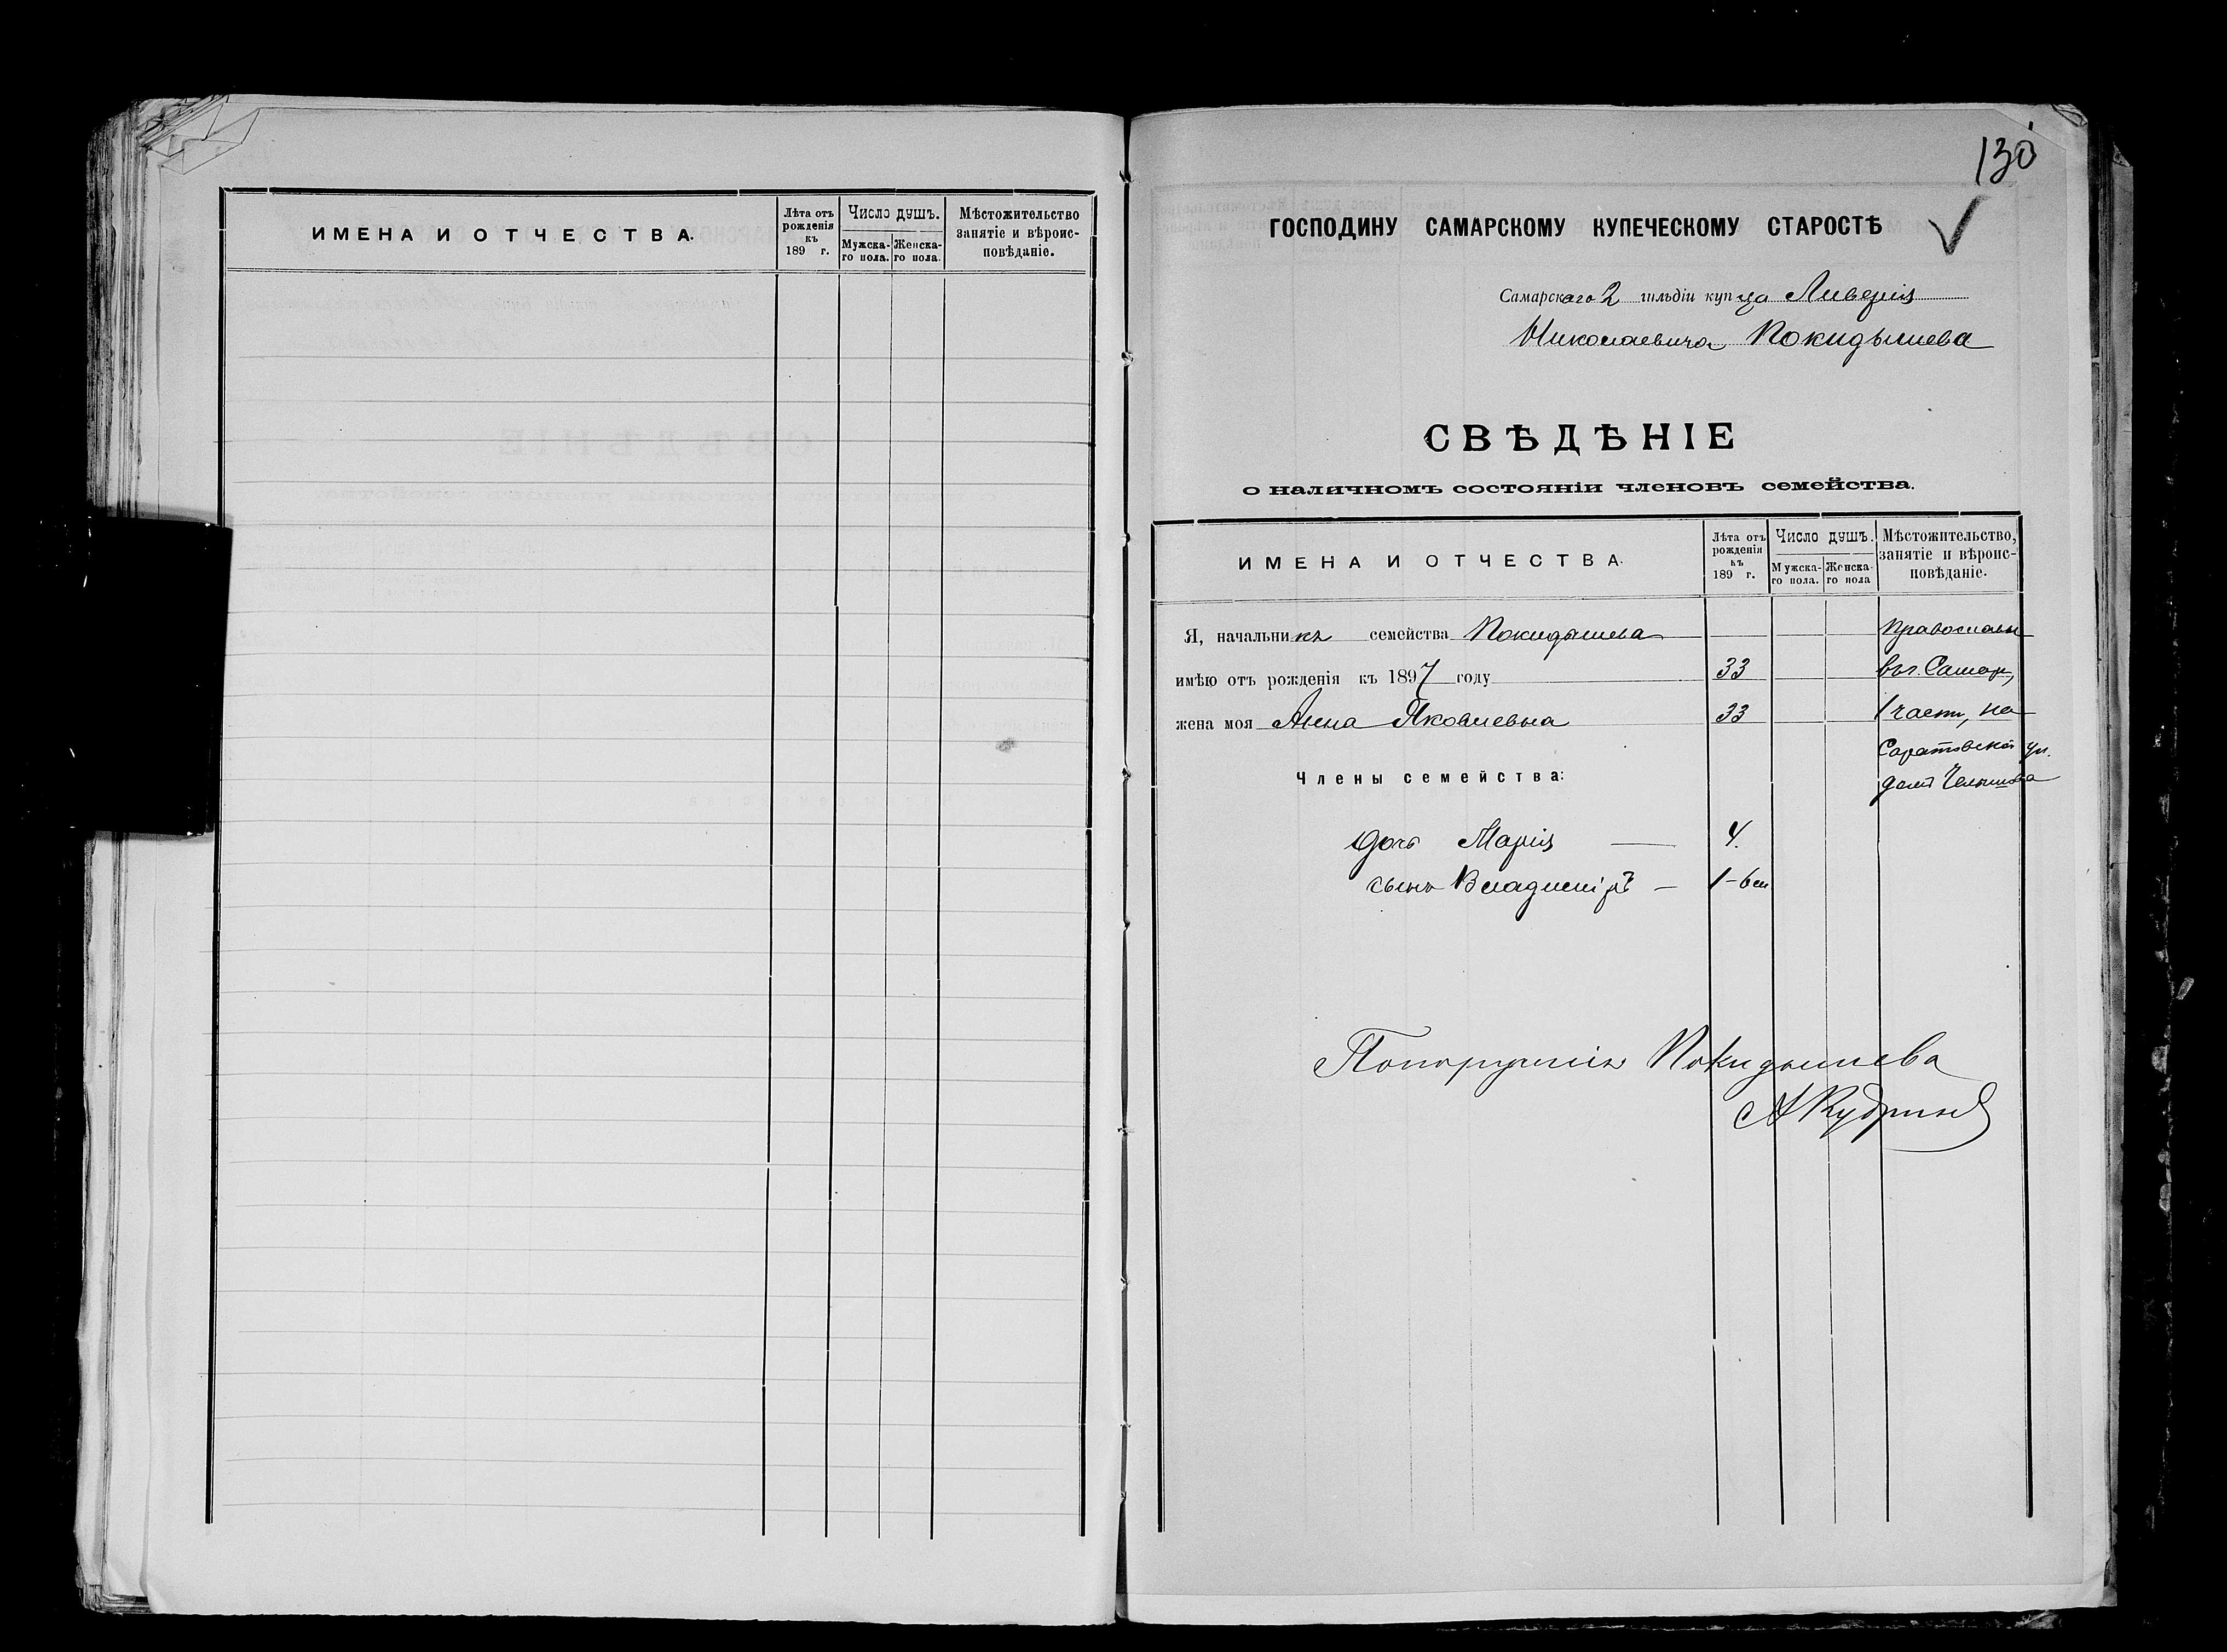 ИМЕНА И ОТЧЕСТВА.
Лѣта отъ рожденія къ 189 г.
Число душъ.
Мужска-го пола.
Женска-го пола.
Мѣстожительство занятіе и вѣроис-повѣданіе.
130
ГОСПОДИНУ САМАРСКОМУ КУПЕЧЕСКОМУ СТАРОСТѢ
Самарскаго 2 гильдіи купца Ливерія
Николаевича Покидышева
СВѢДѢНІЕ
о наличномъ состояніи членовъ семейства.
ИМЕНА И ОТЧЕСТВА.
Лѣта отъ рожденія къ 189 г.
Число душъ.
Мужска-го пола.
Женска-го пола
Мѣстожительство, занятіе и вѣроис-повѣданіе.
Я, начальникъ семейства Покидышева Православн
имѣю отъ рожденія къ 1897 году 33 въ г. Самар,
жена моя Анна Яковлевна 33 1 части, на
Саратовской ул.
Члены семейства:
домъ Челышева
дочь Марія 4.
сынъ Владиміръ 1-6 м
По порученію Покидышева
А Кудринъ